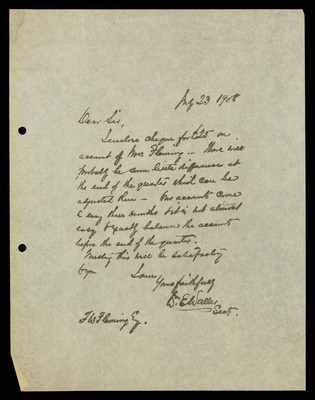 July 23 1918
Dear Sir,
I enclose cheque for £25 on
account of Mrs Fleming - There will
probably be some little difference at
the end of the quarter which can be
adjusted then - Our accounts come
every three months & it is not almost
easy to exactly balance the accounts
before the end of the quarter.
Trusting this will be satisfactory
I am
Yours faithfully
E Waller
Secy.
Fleming Esq.